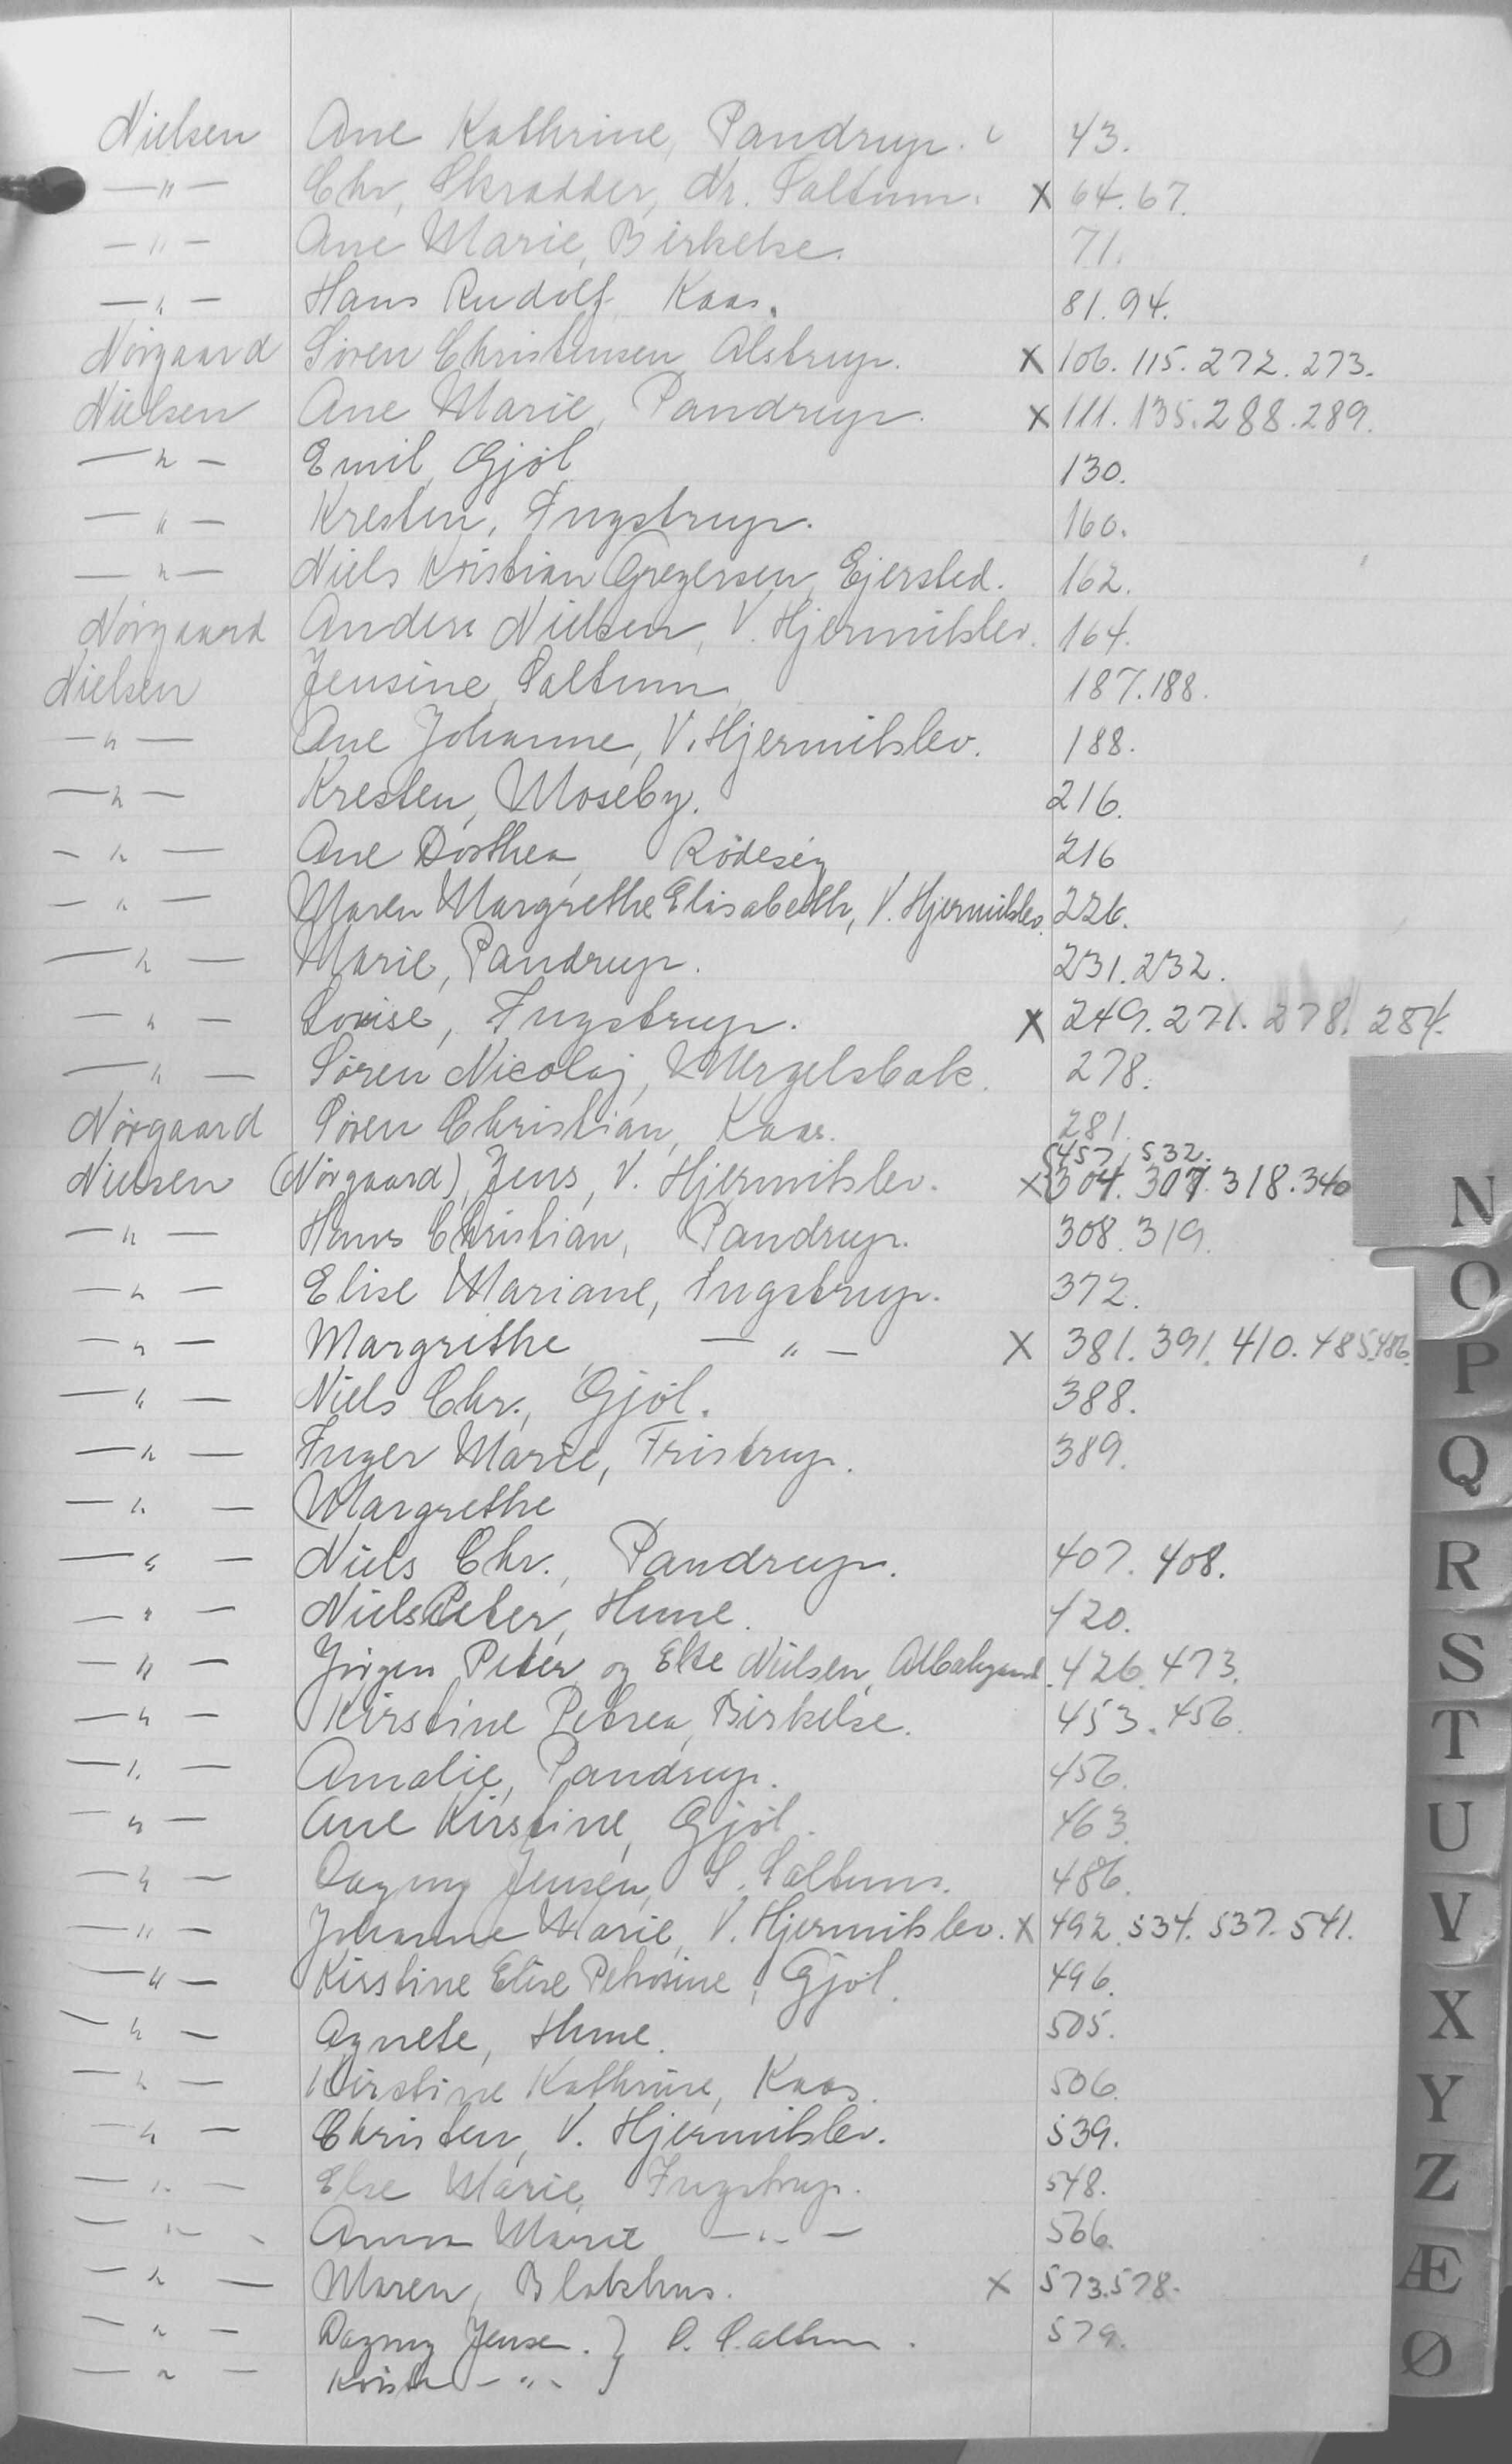 Nielsen Ane Kathrine, Pandrup. 43.
—"— Chr, Skrædder, Nr. Saltum. X 64. 67.
—"— Ane Marie, Birkelse. 71.
—"— Hans Rudolf, Kaas. 81. 94.
Nörgaard Sören Christensen, Alstrup. X 106. 115. 272. 273.
Nielsen Ane Marie, Pandrup. X 111. 135. 288. 289.
—"— Emil, Gjöl 130.
—"— Kresten, Ingstrup. 160.
—"— Niels Kristian Gregersen, Ejersted. 162.
Nörgaard Anders Nielsen, V. Hjermitslev. 164.
Nielsen Jensine, Saltum 187. 188.
—"— Ane Johanne, V. Hjermitslev. 188.
—"— Kresten, Moseby. 216.
—"— Ane Dorthea, Rödesig 216
—"— Maren Margrethe Elisabeth, V. Hjermitslev. 226.
—"— Marie, Pandrup. 231. 232.
—"— Louise, Ingstrup. X 249. 271. 278. 284.
—"— Sören Nicolaj, Mergelsbak. 278.
Nörgaard Sören Christian, Kaas. 281.
457, 532.
Nielsen (Nörgaard), Jens, V. Hjermitslev. X 304. 307. 318. 340
—"— Hans Christian, Pandrup. 308. 319.
—"— Elise Mariane, Ingstrup. 372.
—"— Margrethe —"— X 381. 391. 410. 485. 486.
—"— Niels Chr., Gjöl. 388.
—"— Inger Marie, Fristrup. 389.
—"— Margrethe
—"— Niels Chr., Pandrup. 407. 408.
—"— Niels Peter, Hune. 420.
—"— Jörgen Peter og Else Nielsen, 426. 473.
—"— Kirstine Petrea, Birkelse. 453. 456.
—"— Amalie, Pandrup. 456.
—"— Ane Kirstine, Gjöl. 463.
—"— Dagny Jensen, S. Saltum. 486.
—"— Johanne Marie, V. Hjermitslev. X 492. 534. 537. 541.
—"— Kirstine Elise Petrosine, Gjöl. 496.
—"— Agnete, Hune. 505.
—"— Kirstine Kathrine, Kaas. 506.
—"— Christen, V. Hjermitslev. 539.
—"— Else Marie, Ingstrup. 548.
—"— Anna Marie —"— 566.
—"— Maren, Blokhus. X 573. 578.
—"— Dagny Jensen. } S. Saltum. 579.
—"— —"— }
N
O
P
Q
R
S
T
U
V
X
Y
Z
Æ
Ø